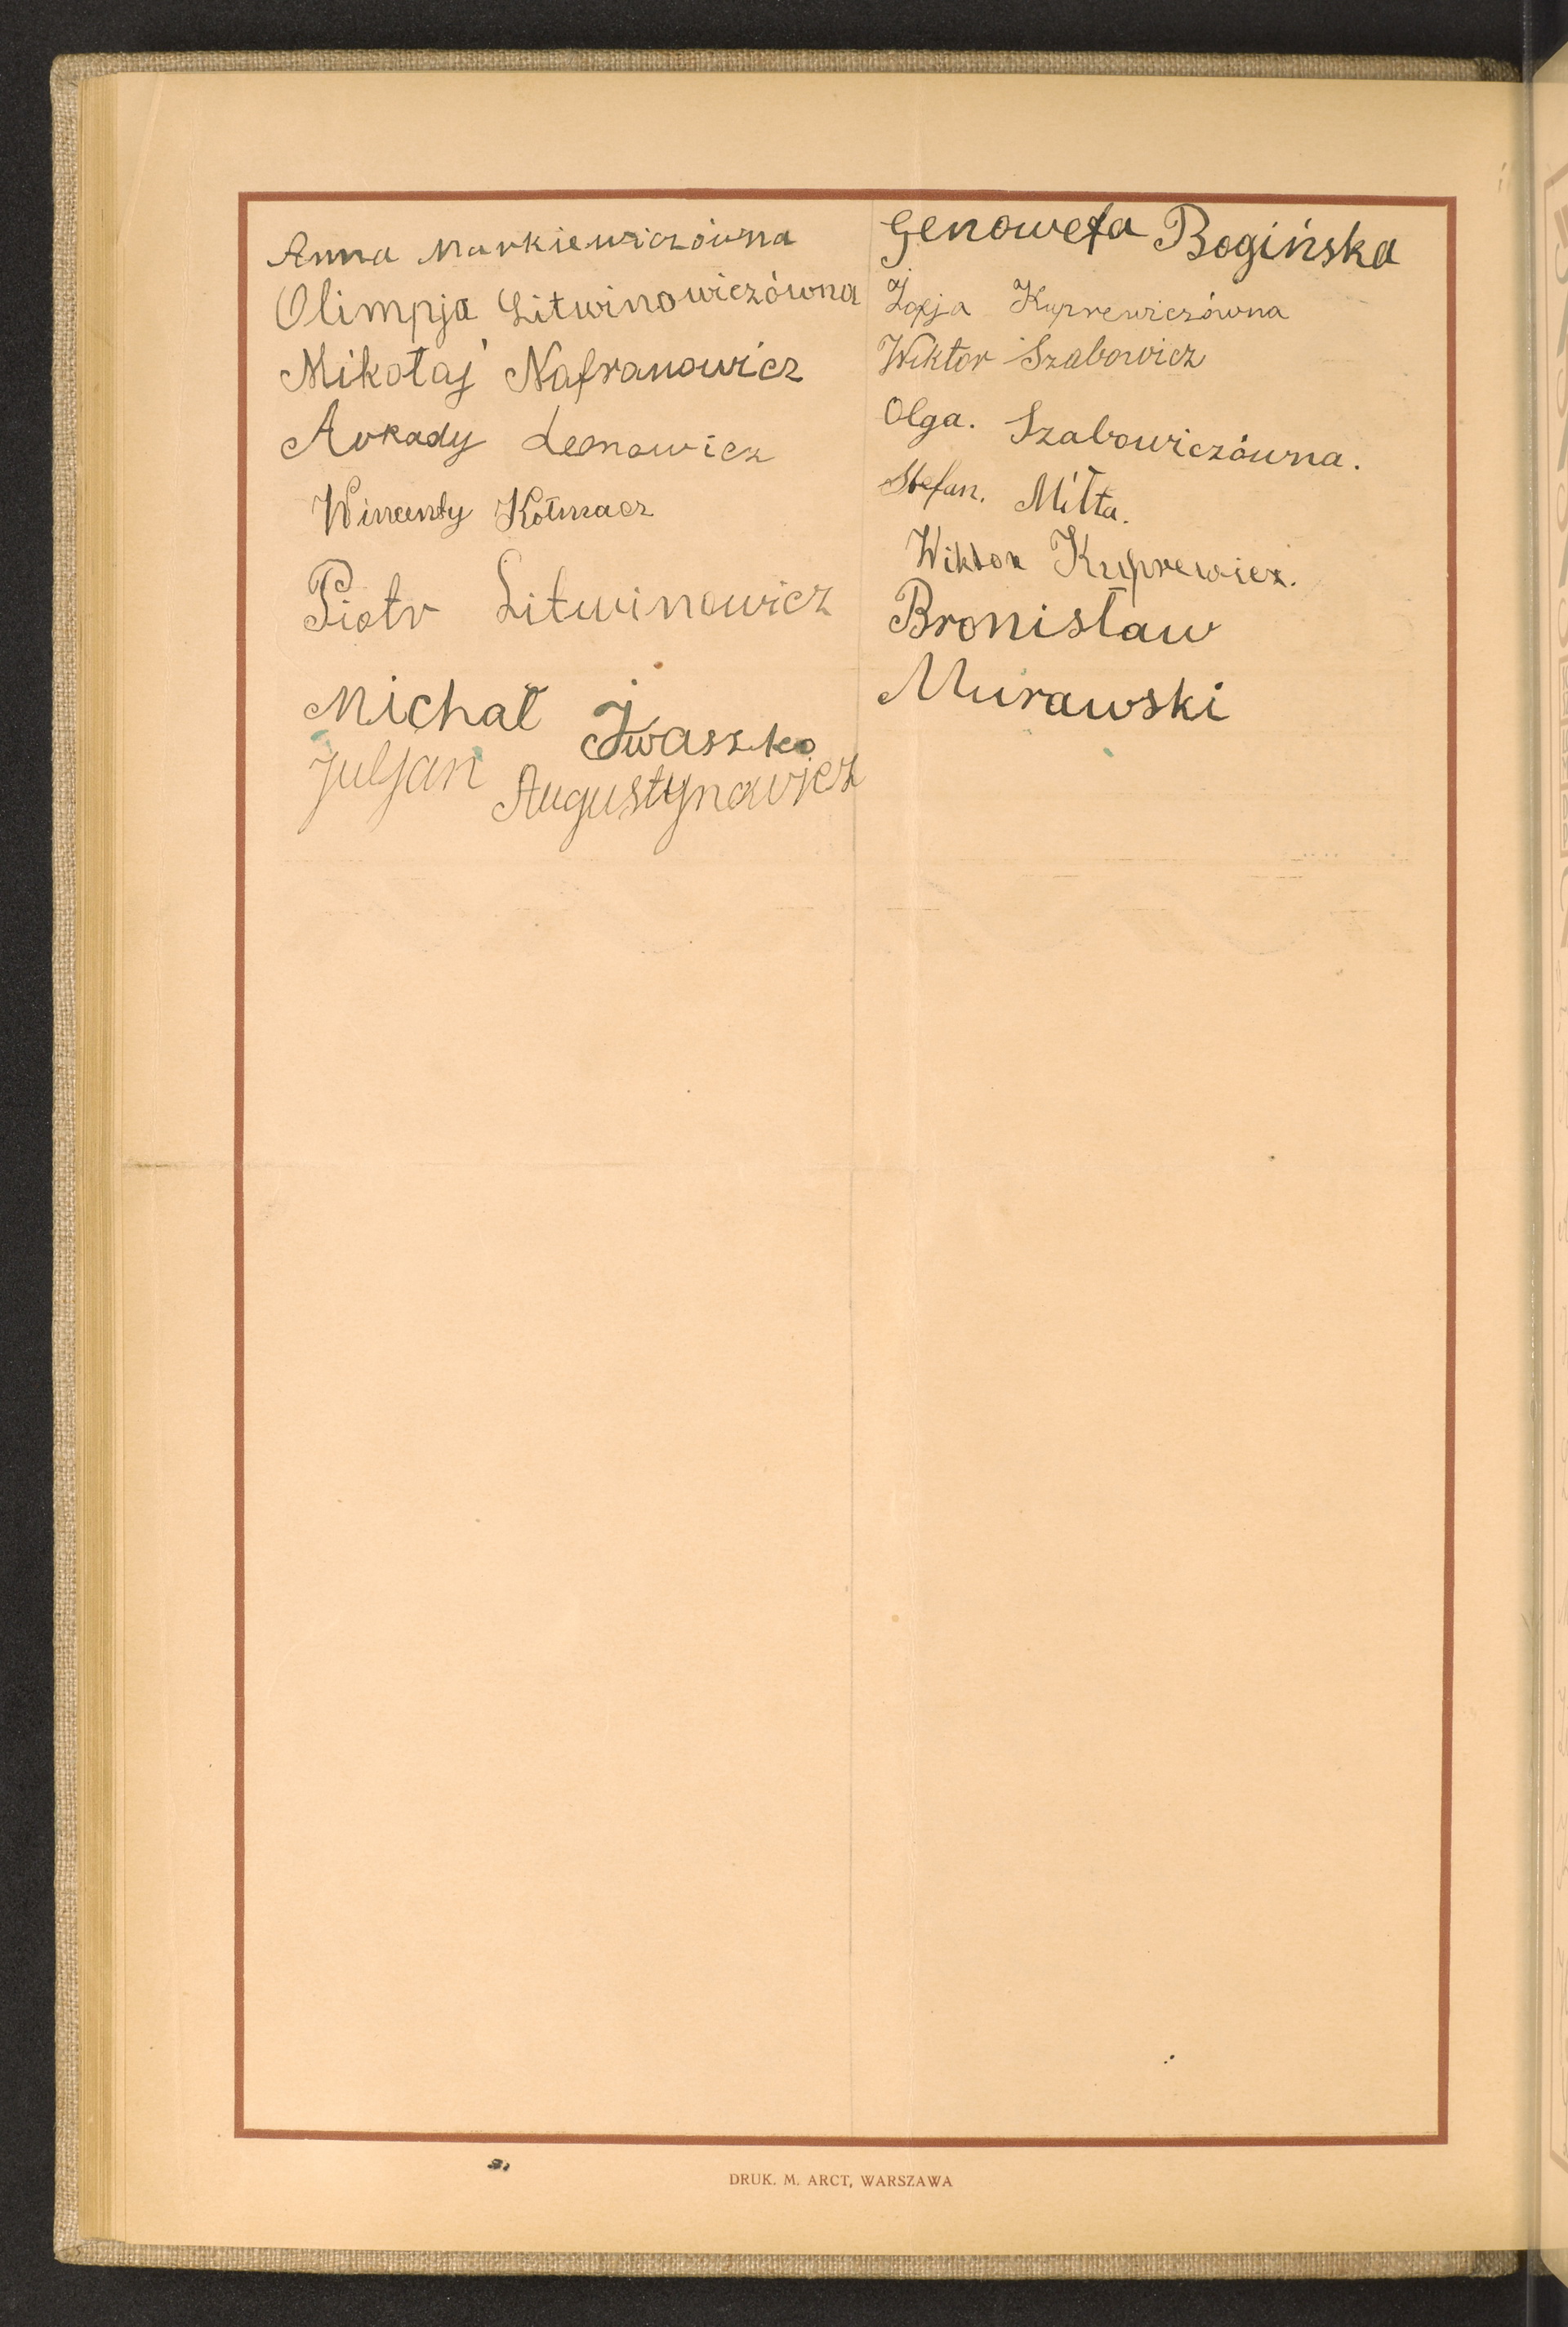 Anna Markiewiczówna
Olimpja Litwinowiczówna
Mikołaj Nafranowicz
Arkady Leonowicz
Wincenty Kołmacz
Piotr Litwinowicz
Michał Iwaszko
Juljan Augustynowicz
Genowefa Bogińska
Zofja Kuprewiczówna
Wiktor Szabowicz
Olga. Szabowiczówna.
Stefan. Miłta.
Wiktor Kuprewicz.
Bronisław
Murawski
DRUK. M. ARCT, WARSZAWA